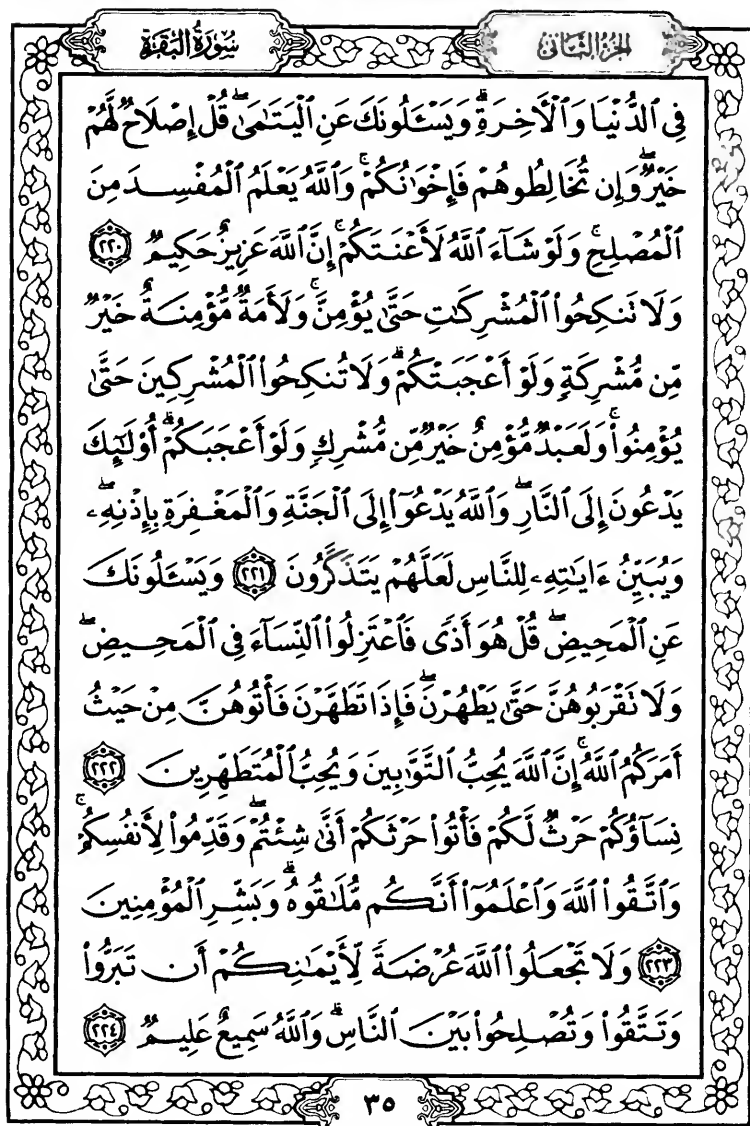 الجزء الثاني
سورة البقرة
فِي ٱلدُّنْيَا وَٱلْأَخِرَةِۗ وَيَسْـَٔلُونَكَ عَنِ ٱلْيَتَٰمَىٰۖ قُلْ إِصْلَاحٌ لَّهُمْ
خَيْرٌۖ وَإِن تُخَالِطُوهُمْ فَإِخْوَٰنُكُمْۚ وَٱللَّهُ يَعْلَمُ ٱلْمُفْسِدَ مِنَ
ٱلْمُصْلِحِۚ وَلَوْ شَآءَ ٱللَّهُ لَأَعْنَتَكُمْۚ إِنَّ ٱللَّهَ عَزِيزٌ حَكِيمٌ ٢٢٠
وَلَا تَنكِحُوا۟ ٱلْمُشْرِكَٰتِ حَتَّىٰ يُؤْمِنَّۚ وَلَأَمَةٌ مُّؤْمِنَةٌ خَيْرٌ
مِّن مُّشْرِكَةٍ وَلَوْ أَعْجَبَتْكُمْۗ وَلَا تُنكِحُوا۟ ٱلْمُشْرِكِينَ حَتَّىٰ
يُؤْمِنُوا۟ۚ وَلَعَبْدٌ مُّؤْمِنٌ خَيْرٌ مِّن مُّشْرِكٍ وَلَوْ أَعْجَبَكُمْۗ أُو۟لَٰٓئِكَ
يَدْعُونَ إِلَى ٱلنَّارِۖ وَٱللَّهُ يَدْعُوٓا۟ إِلَى ٱلْجَنَّةِ وَٱلْمَغْفِرَةِ بِإِذْنِهِۦۖ
وَيُبَيِّنُ ءَايَٰتِهِۦ لِلنَّاسِ لَعَلَّهُمْ يَتَذَكَّرُونَ ٢٢١ وَيَسْـَٔلُونَكَ
عَنِ ٱلْمَحِيضِۖ قُلْ هُوَ أَذًى فَٱعْتَزِلُوا۟ ٱلنِّسَآءَ فِى ٱلْمَحِيضِۖ
وَلَا تَقْرَبُوهُنَّ حَتَّىٰ يَطْهُرْنَۖ فَإِذَا تَطَهَّرْنَ فَأْتُوهُنَّ مِنْ حَيْثُ
أَمَرَكُمُ ٱللَّهُۚ إِنَّ ٱللَّهَ يُحِبُّ ٱلتَّوَّٰبِينَ وَيُحِبُّ ٱلْمُتَطَهِّرِينَ ٢٢٢
نِسَآؤُكُمْ حَرْثٌ لَّكُمْ فَأْتُوا۟ حَرْثَكُمْ أَنَّىٰ شِئْتُمْۖ وَقَدِّمُوا۟ لِأَنفُسِكُمْۚ
وَٱتَّقُوا۟ ٱللَّهَ وَٱعْلَمُوٓا۟ أَنَّكُم مُّلَٰقُوهُۗ وَبَشِّرِ ٱلْمُؤْمِنِينَ
٢٢٣ وَلَا تَجْعَلُوا۟ ٱللَّهَ عُرْضَةً لِّأَيْمَٰنِكُمْ أَن تَبَرُّوا۟
وَتَتَّقُوا۟ وَتُصْلِحُوا۟ بَيْنَ ٱلنَّاسِۗ وَٱللَّهُ سَمِيعٌ عَلِيمٌ ٢٢٤
٣٥